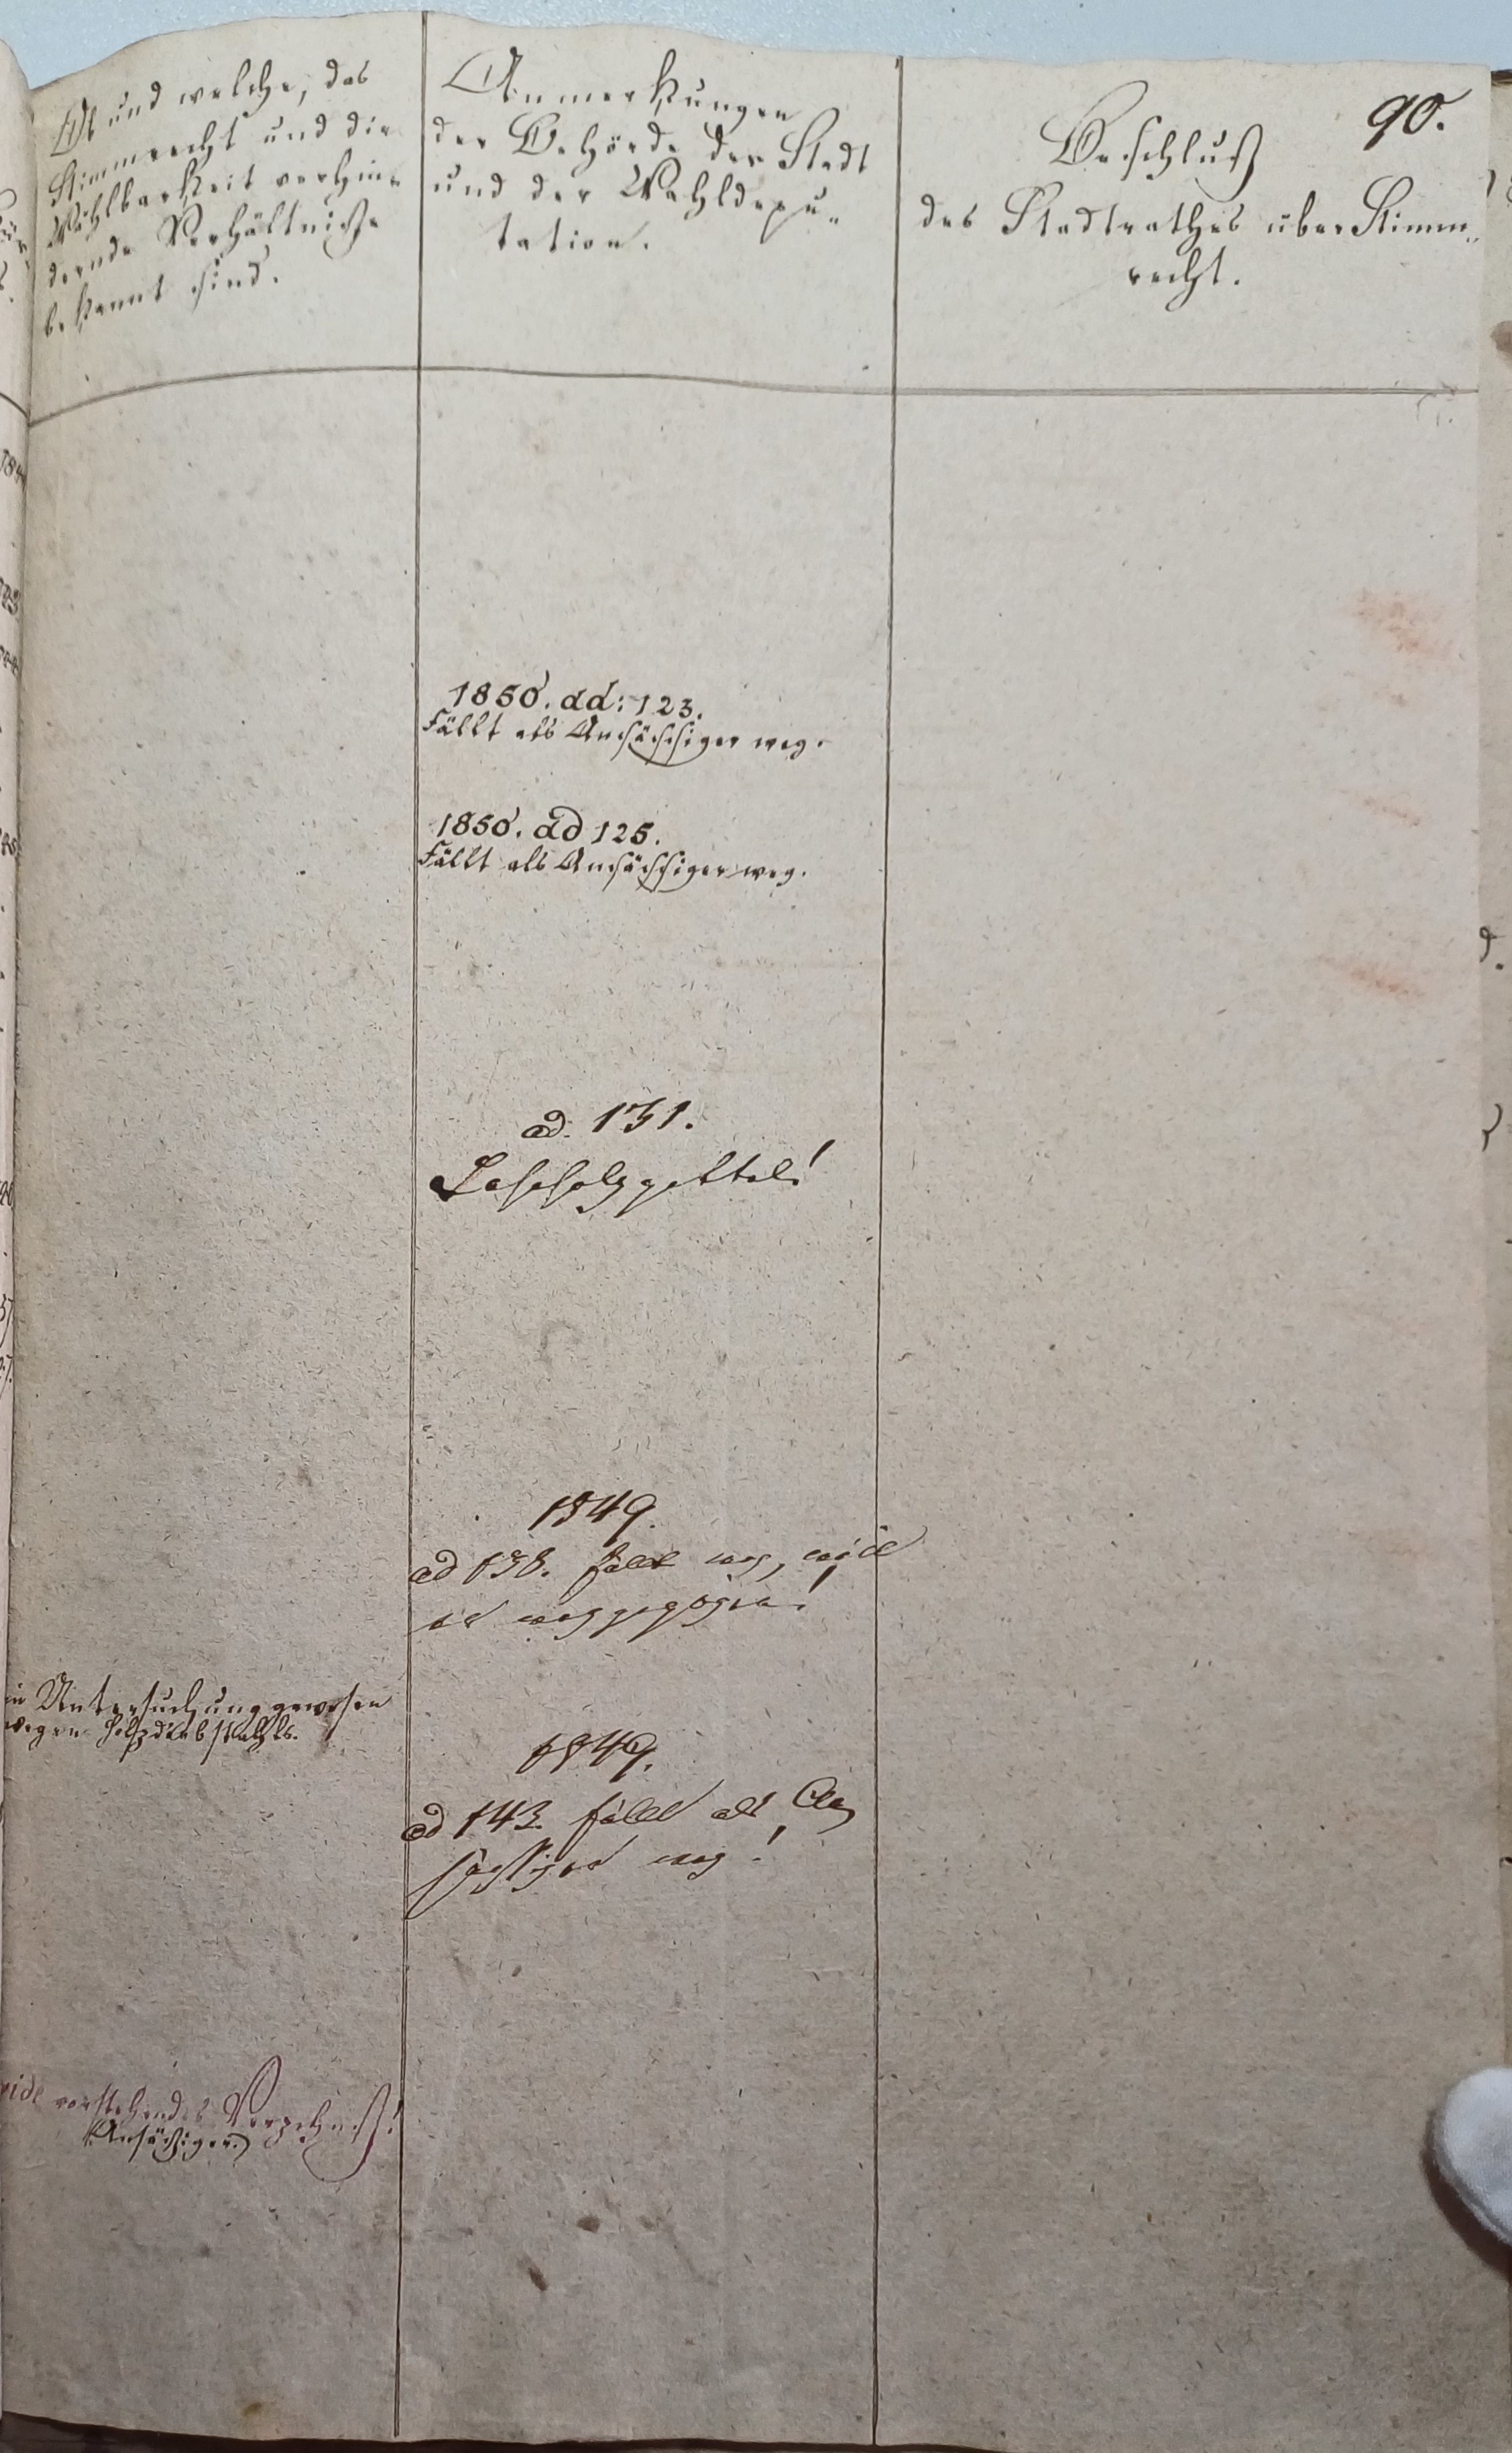 90.
Ob und welche, das
Stimmrecht und die
Wählbarkeit verhin-
dernde Verhältniße
bekannt sind.
Anmerkungen
der Behörde der Stadt
und der Wahldepu-
tation.
Beschluß
des Stadtrathes über Stimm-
recht.
1850. ad: 123.
Fällt als Ansässiger weg.
1850. ad 125.
Fällt als Ansässiger weg.
ad. 131.
1849.
ad 138. fällt weg, weil
er weggezogen!
in Untersuchung gewesen
wegen Holzdiebstahls.
1849.
ad 143. fällt als An-
sässiger weg!
vide vorstehendes Verzeichniß!
(Ansässiger.)